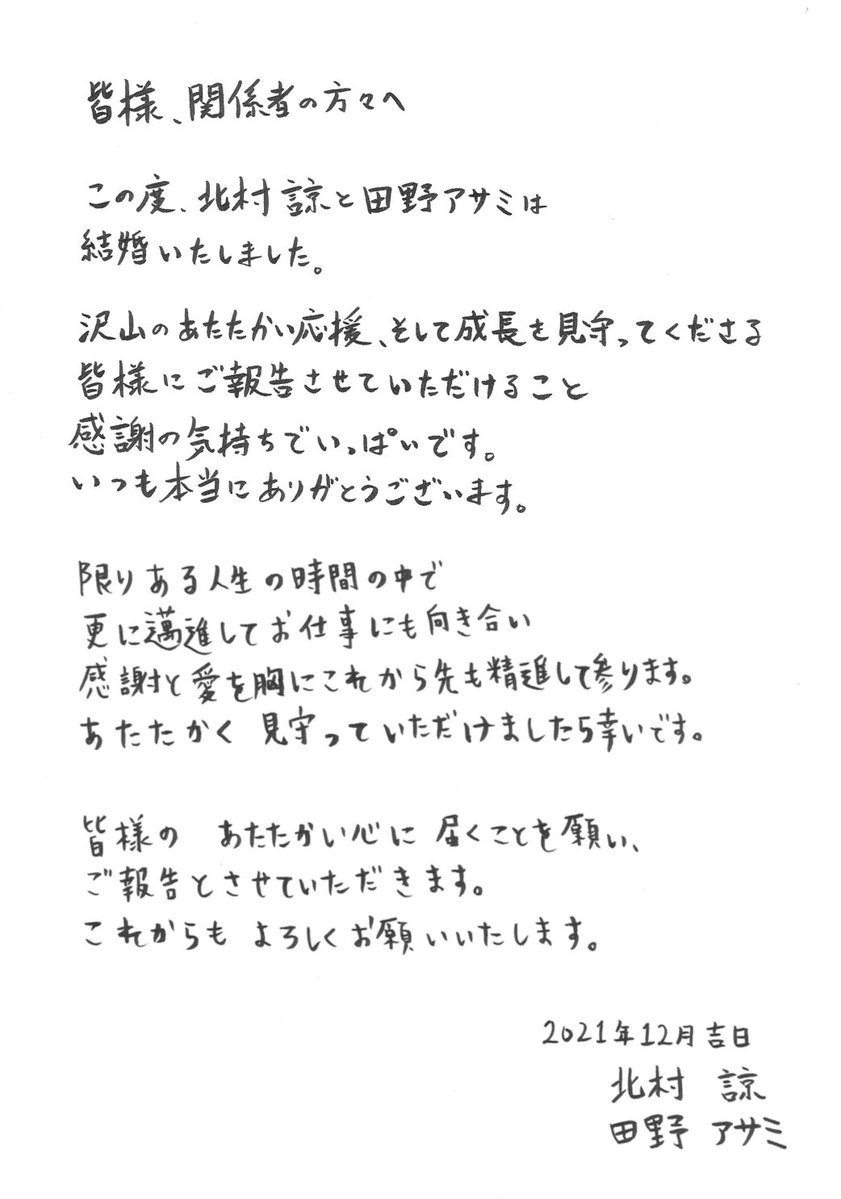 皆様、関係者の方々へ
この度、北村諒と田野アサミは
結婚いたしました。
沢山のあたたかい応援、そして成長を見守ってくださる
皆様にご報告させていただけること
感謝の気持ちでいっぱいです。
いつも本当にありがとうございます。
限りある人生の時間の中で
更に邁進してお仕事にも向き合い
感謝と愛を胸にこれから先も精進して参ります。
あたたかく見守っていただけましたら幸いです。
皆様の　あたたかい心に届くことを願い、
ご報告とさせていただきます。
これからもよろしくお願いいたします。
2021年12月吉日
北村　諒
田野　アサミ